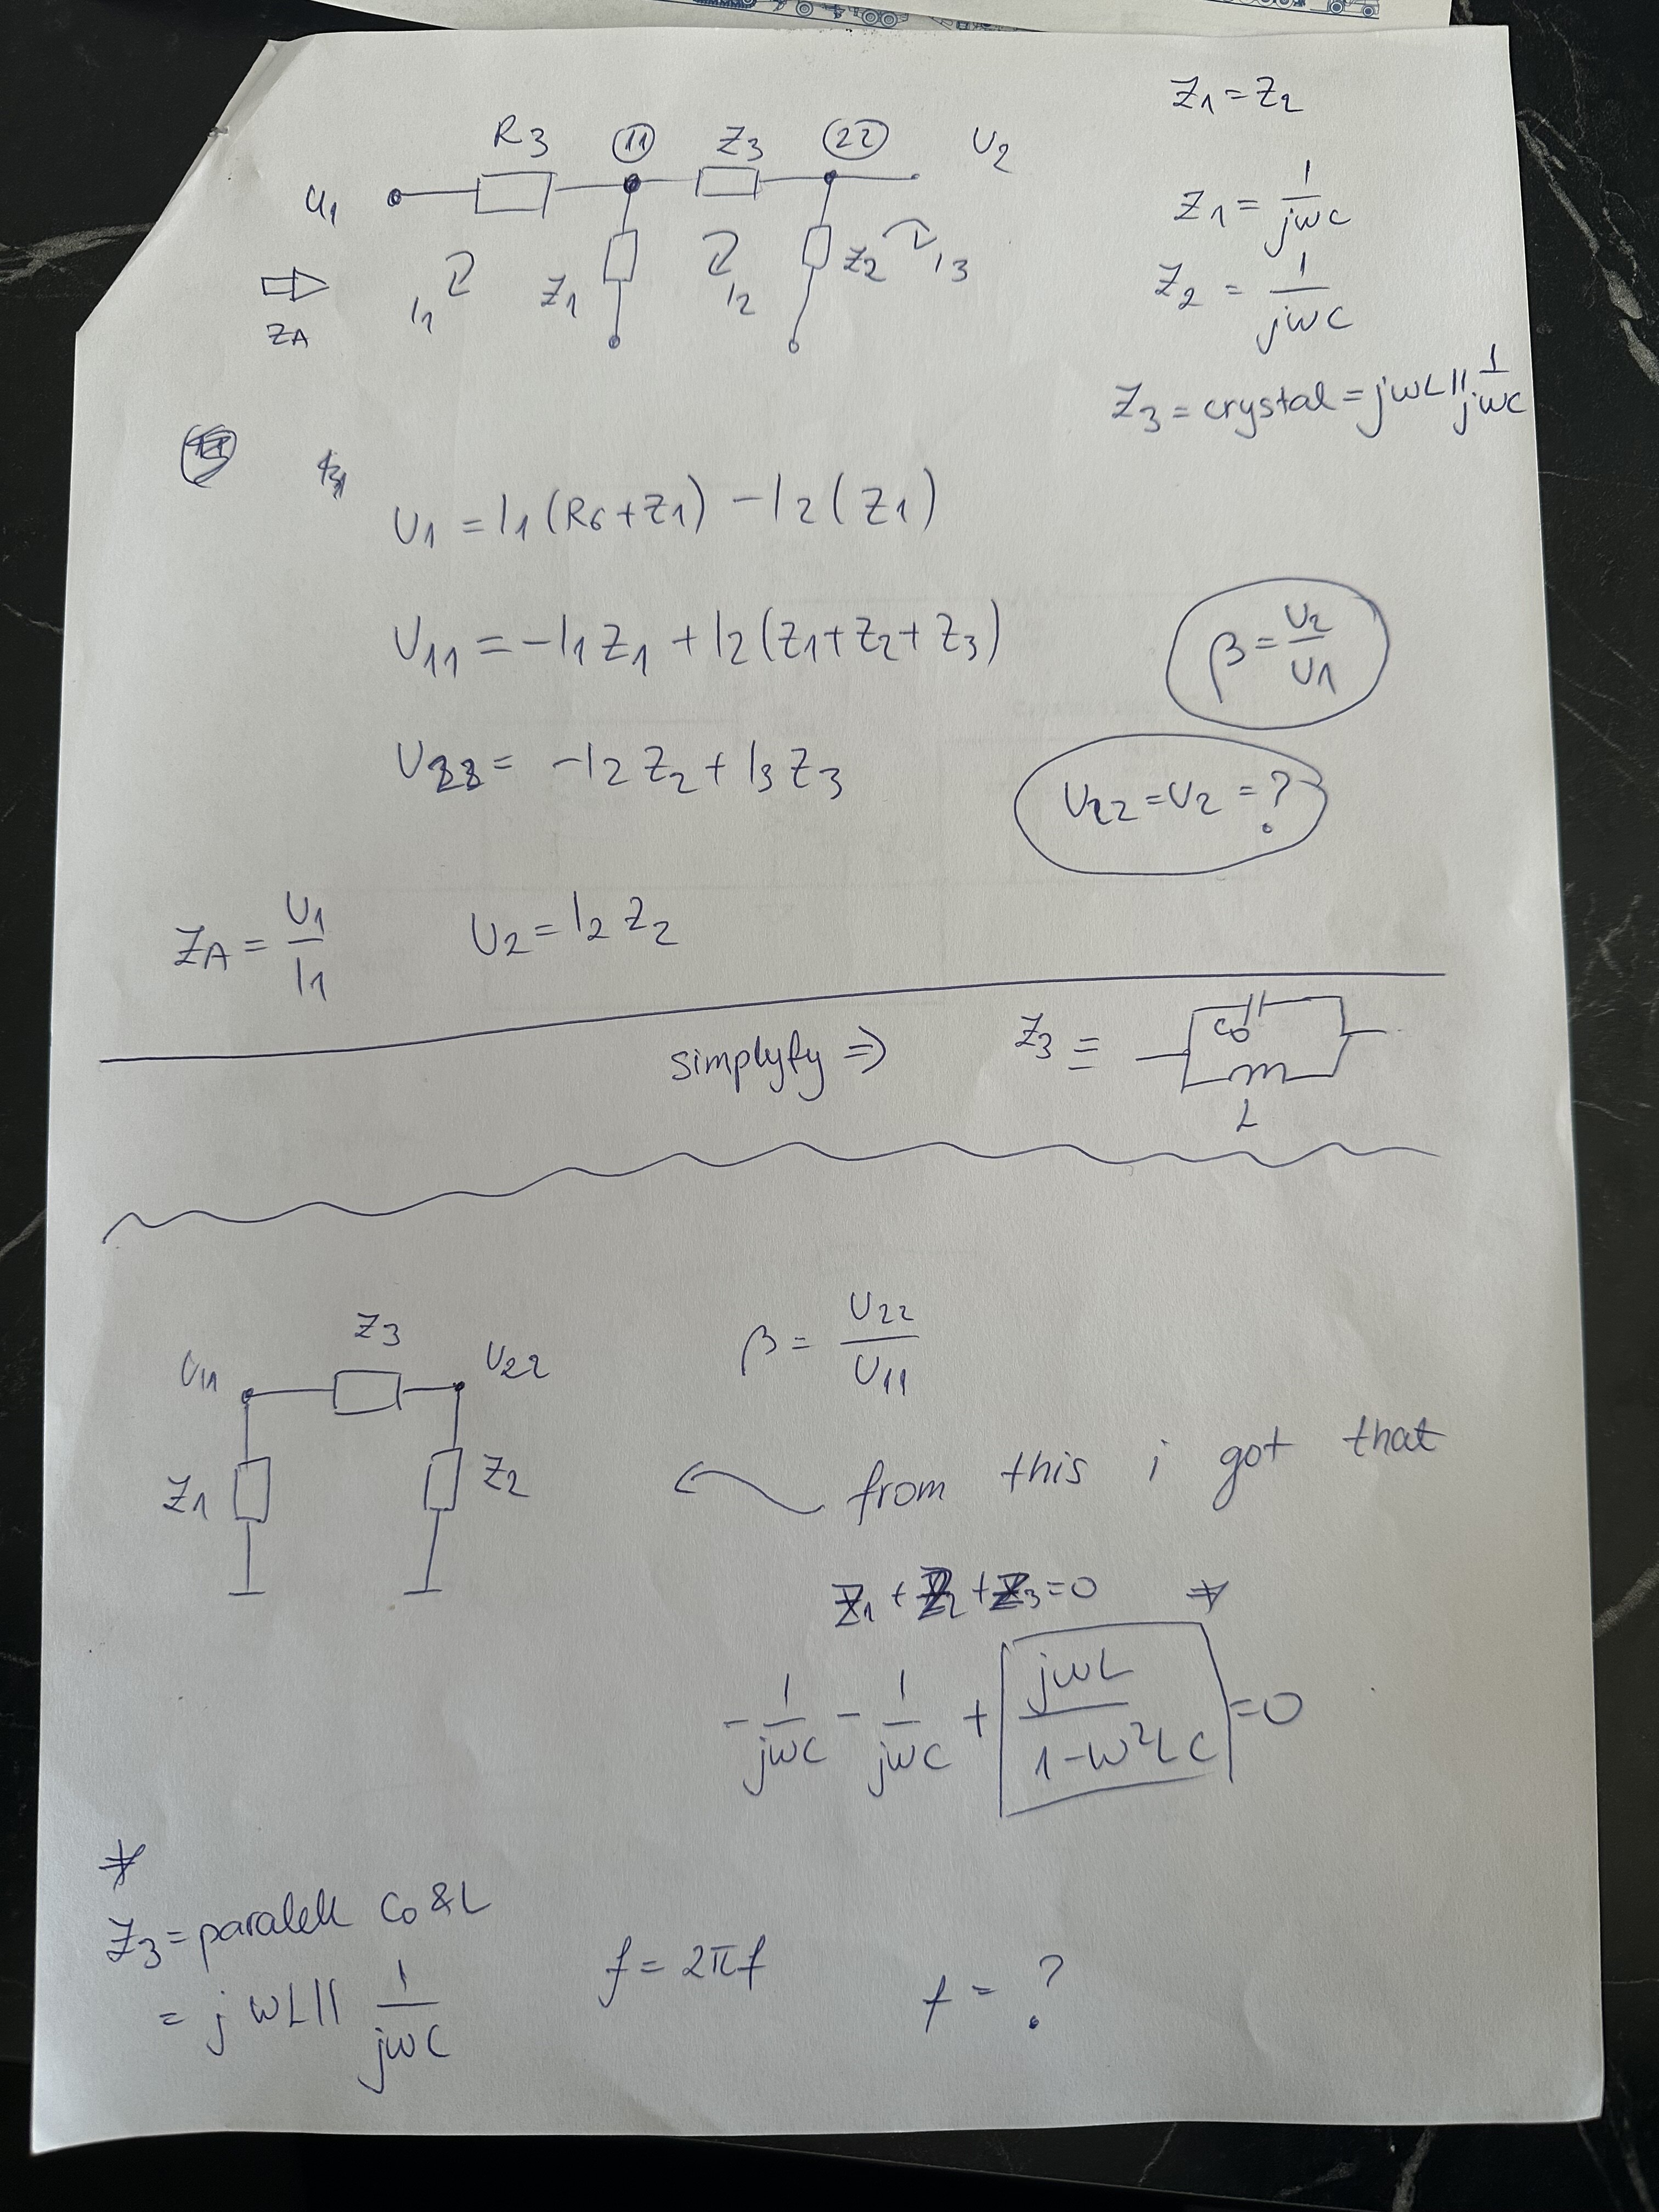 Z1 = Z2
R3 11 Z3 22 U2
U1
Z1 = 1/jωC
I1 Z1 I2 Z2 I3
ZA
Z2 = 1/jωC
Z3 = crystal = jωL || 1/jωC
U1 = I1 (R6 + Z1) - I2 (Z1)
U11 = -I1 Z1 + I2 (Z1 + Z2 + Z3)
β = U2/U1
U22 = -I2 Z2 + I3 Z3
U22 = U2 = ?
ZA = U1/I1 U2 = I2 Z2
simplyfy ⇒ Z3 = C0
L
Z3
U11 U22 β = U22/U11
Z1 Z2
from this i got that
Z1 + Z2 + Z3 = 0 *
- 1/jωC - 1/jωC + jωL/(1 - ω²LC) = 0
*
Z3 = paralell C0 & L
= jωL || 1/jωC f = 2πf f = ?